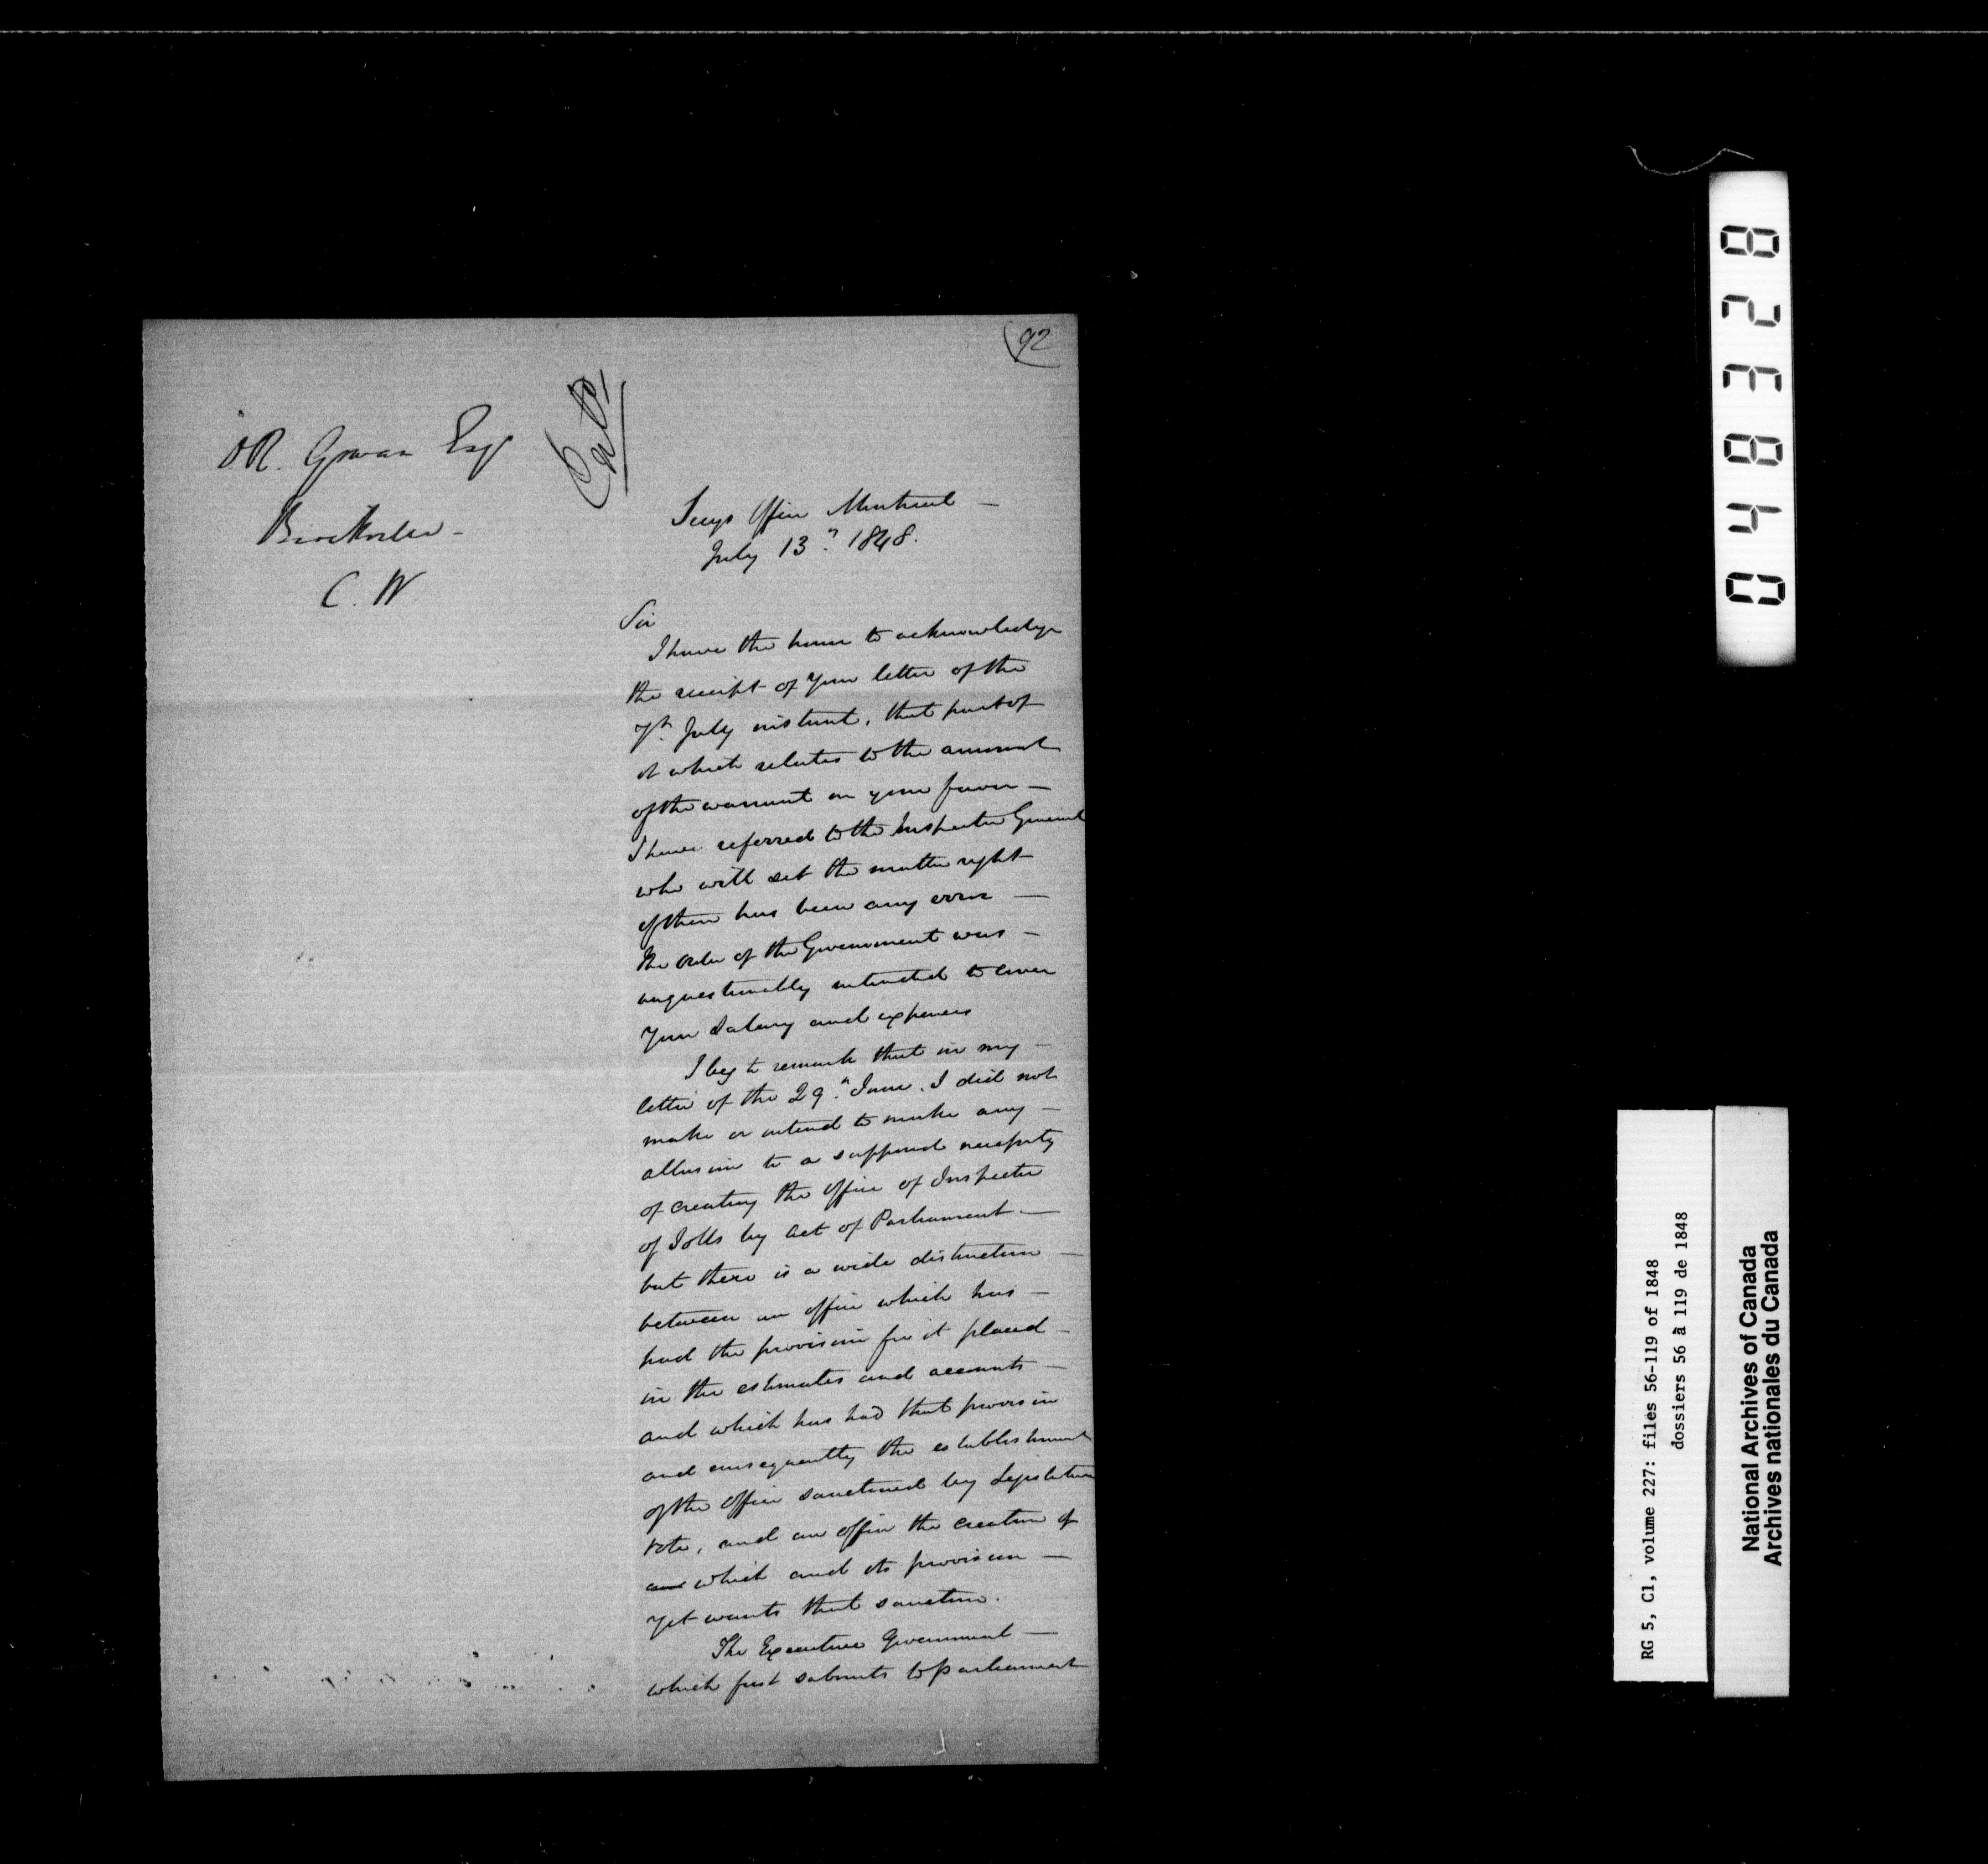 92
O R. Gowan Esqr
Brockville -
C. W
Secys Office Montreal —
July 13th 1848.
Sir
I have the honor to acknowledge
the receipt of your letter of the
7th July instant, that part of
it which relates to the amount
of the warrant in your favor —
I have referred to the Inspector General
who will set the matter right
if there has been any error —
The Order of the Government was —
unquestionably intended to cover
your salary and expenses
I beg to remark that in my —
letter of the 29th June, I did not
make or intend to make any —
allusion to a supposed necessity
of creating the Office of Inspector
of Tolls by Act of Parliament —
but there is a wide distinction —
between an office which has —
had the provision for it placed —
in the estimates and accounts —
and which has had that provision
and consequently the establishment
of the Office sanctioned by Legislative
vote, and an office the creation of
which and its provision —
yet wants that sanction.
The Executive Government —
which first submits to parliament
823840
RG 5, C1, volume 227: files 56-119 of 1848
dossiers 56 à 119 de 1848
National Archives of Canada
Archives nationales du Canada